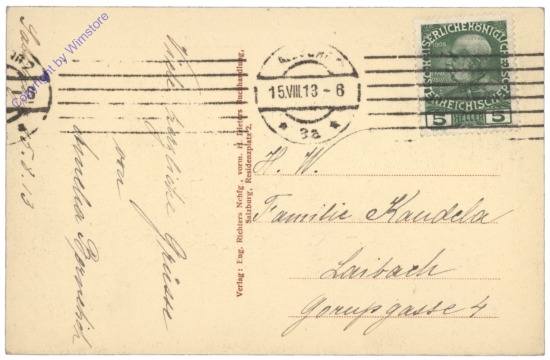 Copyright by Wimstore
5.8.13
Viele herzliche Grüsse
von
Verlag: Eug. Richters Nchfg., vorm. H. Dieters Buchhandlung,
Salzburg, Residenzplatz 2.
15.VIII.13-6
* 3a *
KAISERLICHE KÖNIGLICHE
1908
ÖSTERREICHISCHE
5 HELLER 5
H. W.
Familie Kandela
Laibach
Gorupgasse 4